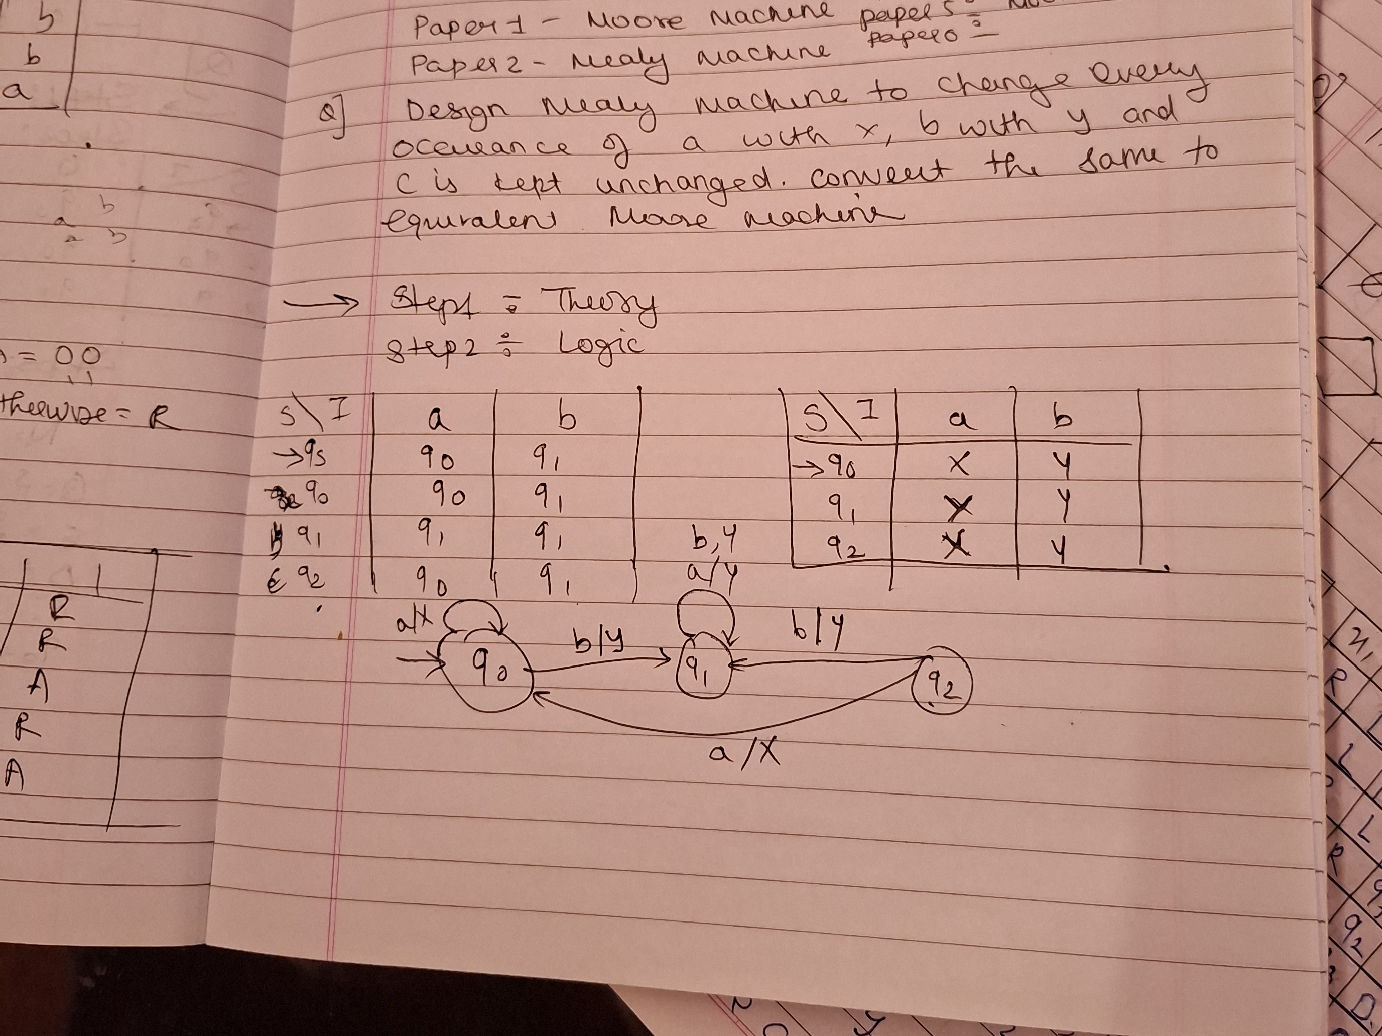 b
b
a
Paper 1 - Moore Machine paper 5 ÷
Paper 2 - Mealy Machine paper 6 ÷
Q] Design Mealy Machine to change every
occurance of a with x, b with y and
c is kept unchanged. convert the same to
equivalent Moore Machine
→ Step 1 ÷ Theory
Step 2 ÷ Logic
a b
a b
= 00
= R
S\I a b
→qs q0 q1
q0 q0 q1
q1 q1 q1
q2 q0 q1
S\I a b
→q0 X Y
q1 Y Y
q2 X Y
b,y
a/y
a/x
b/y
b/y
q0
q1
q2
a/X
R
R
A
R
A